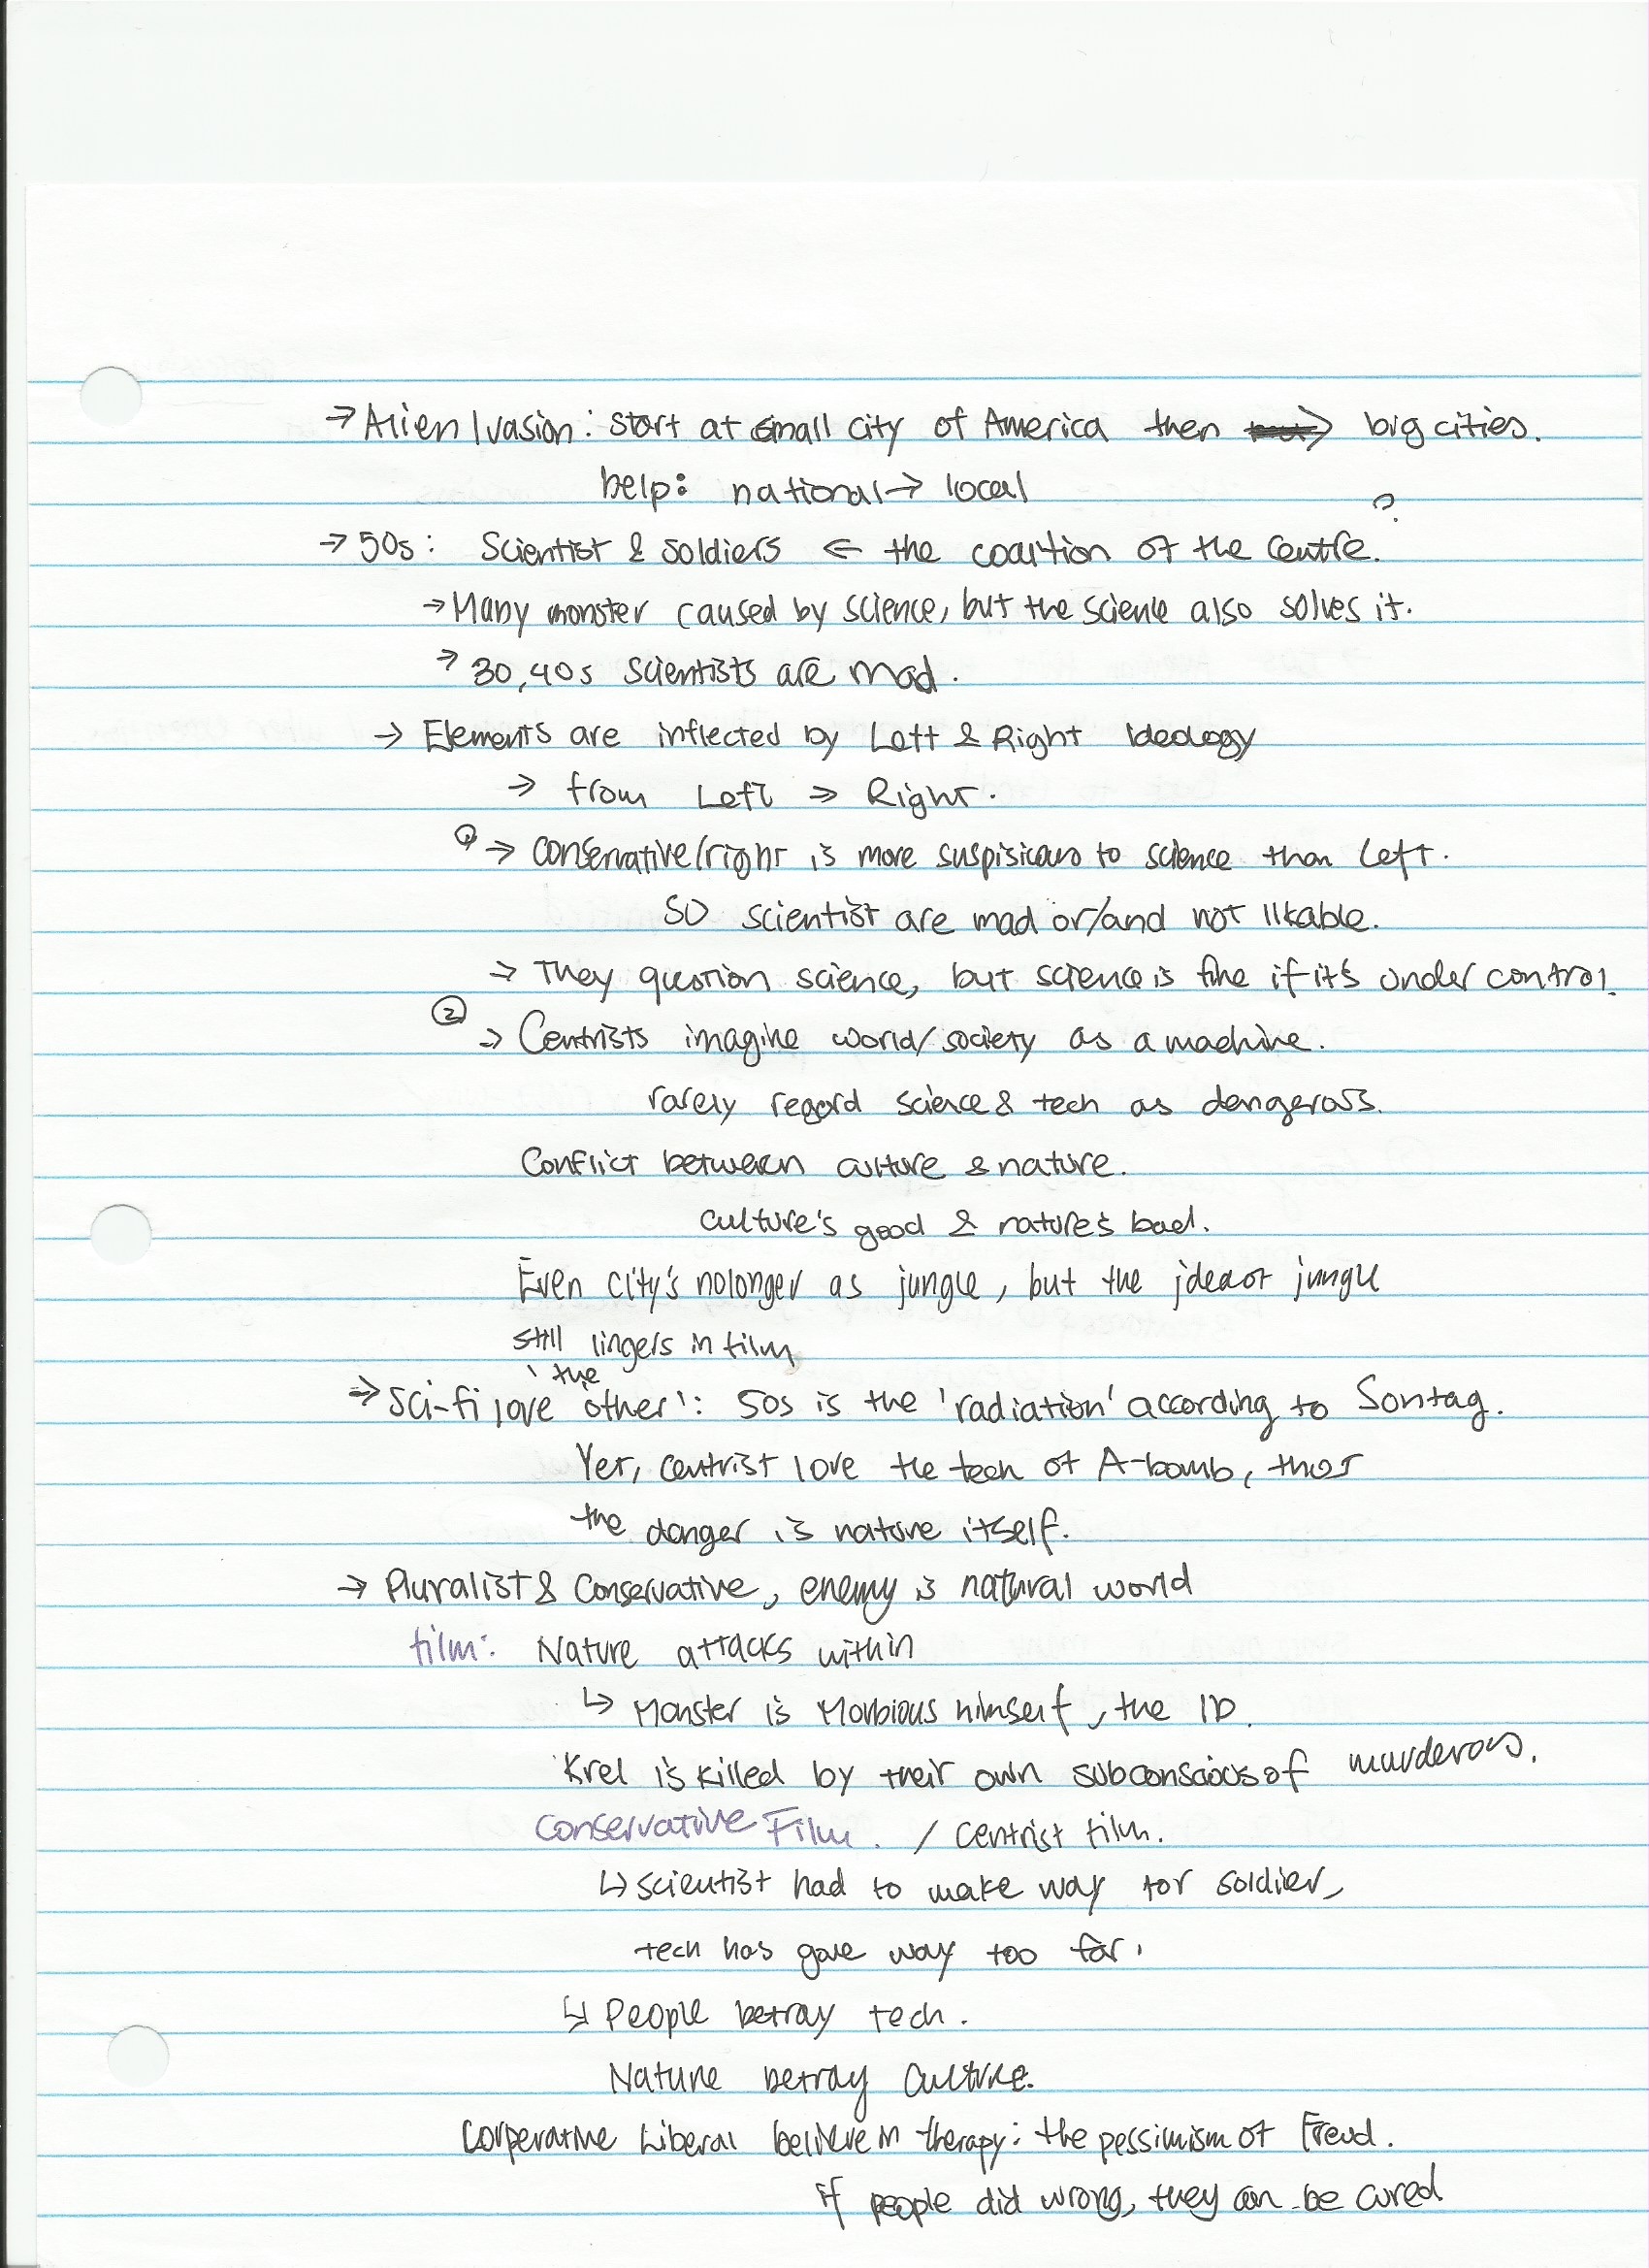 → Alien Ivasion: start at small city of America then → big cities.
help: national → local
?
→ 50s: Scientist & soldiers ← the coaltion of the centre.
→ Many monster caused by science, but the science also solves it.
→ 30,40s scientists are mad.
→ Elements are inflected by Left & Right Ideology
→ from Left → Right.
① → conservative/right is more suspisicous to science than Left.
so scientist are mad or/and not likable.
→ They question science, but science is fine if it's under control.
② → Centrists imagine world/society as a machine.
rarely regard science & tech as dangerous.
Conflict between culture & nature.
culture's good & nature's bad.
Even city's nolonger as jungle, but the idea of jungle
still lingers in film
→ Sci-fi love 'the other': 50s is the 'radiation' according to Sontag.
Yet, centrist love the tech of A-bomb, thus
the danger is nature itself.
→ Pluralist & Conservative, enemy is natural world
film: Nature attacks within
↳ Monster is Morbious himself, the ID.
Krel is killed by their own subconscious of murderous.
Conservative Film. / centrist film.
↳ scientist had to make way for soldier,
tech has gone way too far.
↳ People betray tech.
Nature betray Culture.
Corperative Liberal believe in therapy: the pessimism of Freud.
if people did wrong, they can be cured